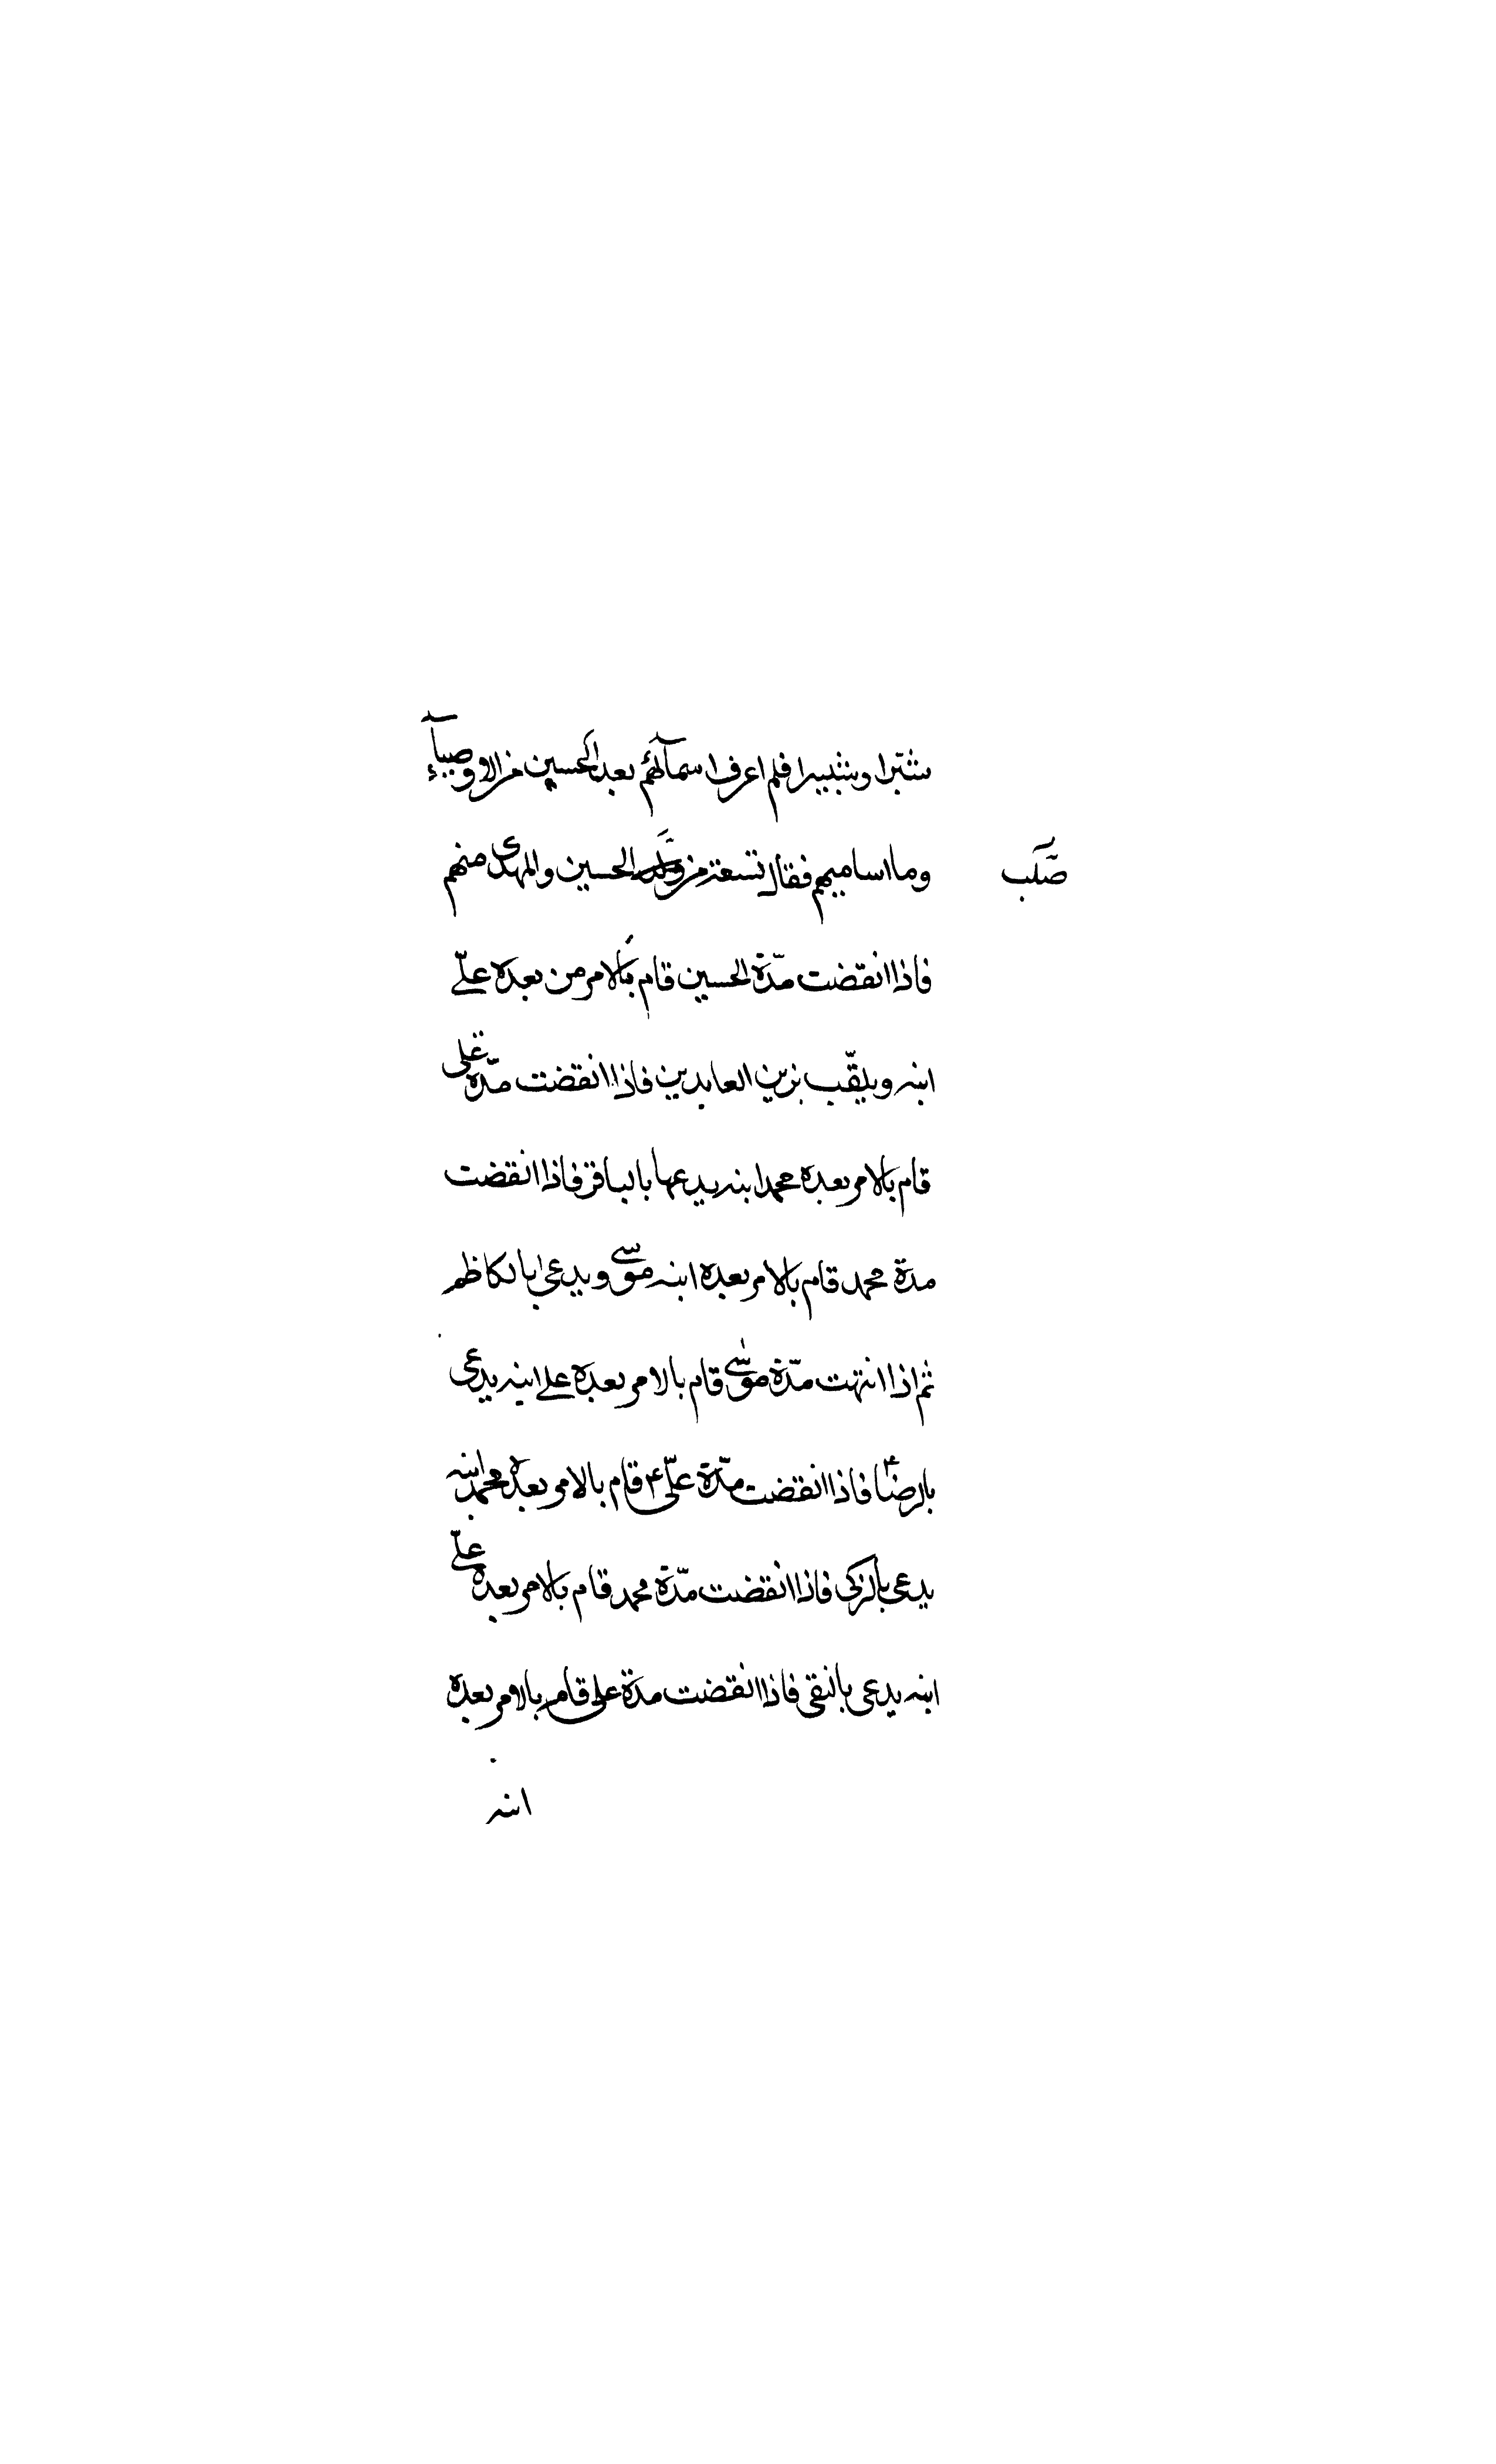 شبّرا وشبيرا فلم اعرف اسمآئهم بعد الحسين من الاوصيآء
وما اساميهم فقال تسعة من ولد الحسين والمهدى منهم
صلب
فاذا انقضت مدّة الحسين قام بالامر من بعده علىّ
ابنه ويلقّب بزين العابدين فاذا انقضت مدّة على
قام بالامر بعده محمد ابنه يدعى بالباقر فاذا انقضت
مدة محمد قام بالامر بعده ابنه موسى ويدعى بالكاظم
ثم اذا انتهت مدّة موسى قام بالامر بعده على ابنه يدعى
بالرضا فاذا انقضت مدّة علىّ ع قام بالامر بعده محمد ابنه
يدعى بالزكى فاذا انقضت مدّة محمد قام بالامر بعده علىّ
ابنه يدعى بالنقى فاذا انقضت مدة على قام بالامر بعده
ابنه